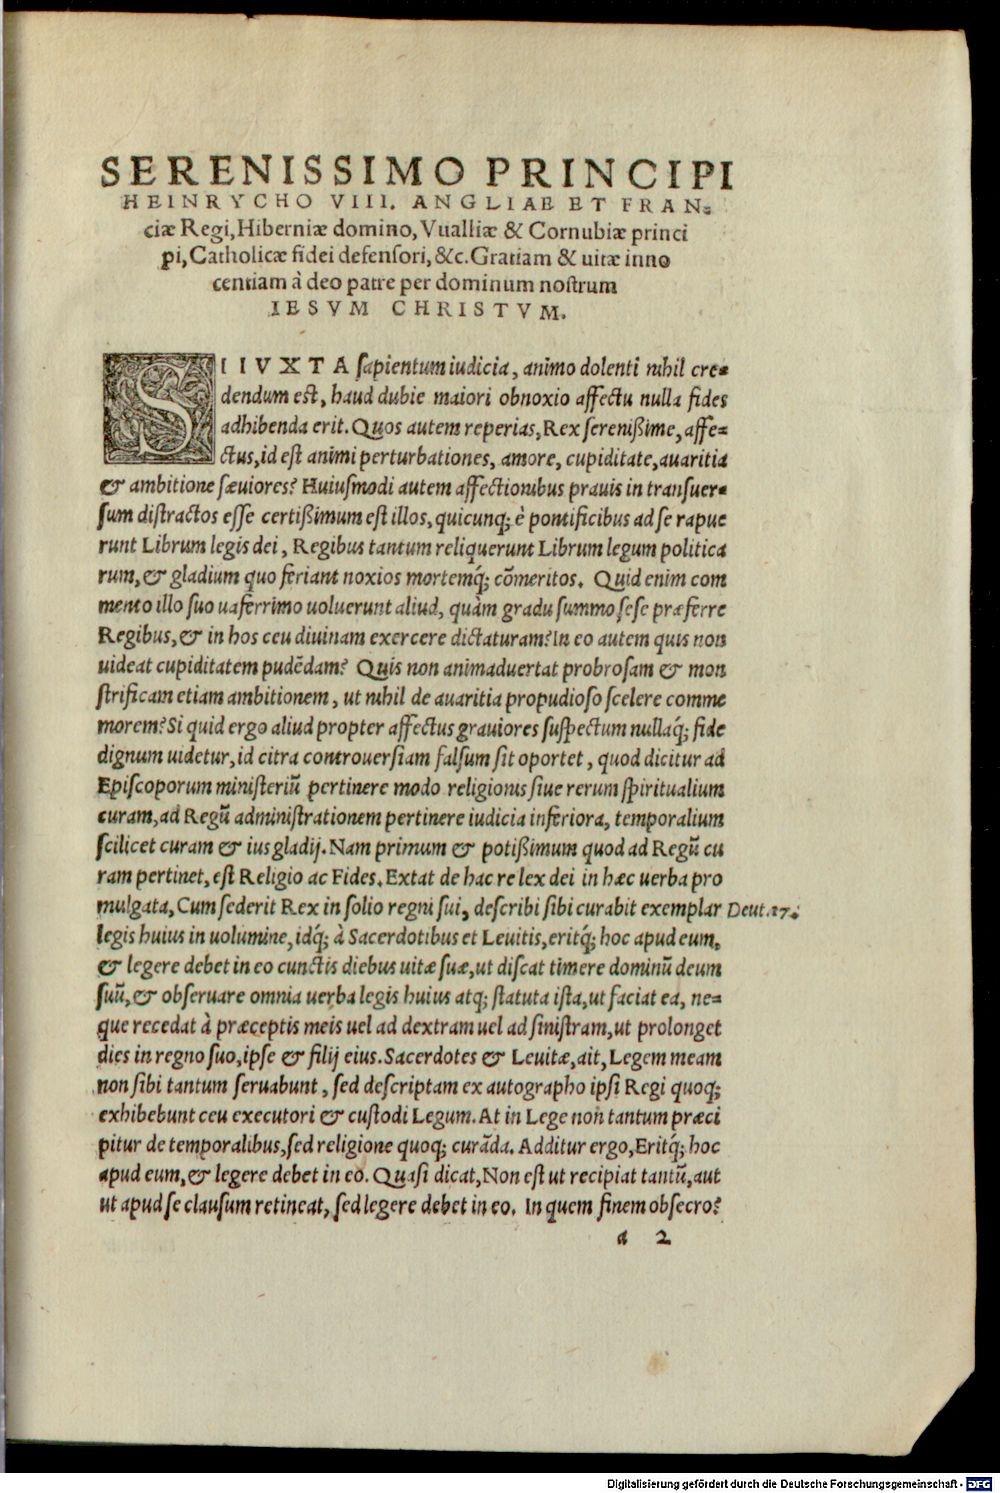 SERENISSIMO PRINCIPI
HEINRYCHO VIII. ANGLIAE ET FRAN-
ciæ Regi, Hiberniæ domino, Vualliæ & Cornubiæ princi
pi, Catholicæ fidei defensori, &c. Gratiam & uitæ inno
centiam à deo patre per dominum nostrum
IESVM CHRISTVM.
SI IVXTA sapientum iudicia, animo dolenti nihil cre-
dendum est, haud dubie maiori obnoxio affectu nulla fides
adhibenda erit. Quos autem reperias, Rex serenißime, affe-
ctus, id est animi perturbationes, amore, cupiditate, auaritia
& ambitione sæuiores? Huiusmodi autem affectionibus prauis in transuer-
sum distractos esse certißimum est illos, quicunq; è pontificibus ad se rapue
runt Librum legis dei, Regibus tantum reliquerunt Librum legum politica
rum, & gladium quo feriant noxios mortemq́; cõmeritos. Quid enim com
mento illo suo uaferrimo uoluerunt aliud, quàm gradu summo sese præferre
Regibus, & in hos ceu diuinam exercere dictaturam? In eo autem quis non
uideat cupiditatem pudẽdam? Quis non animaduertat probrosam & mon
strificam etiam ambitionem, ut nihil de auaritia propudioso scelere comme
morem? Si quid ergo aliud propter affectus grauiores suspectum nullaq́; fide
dignum uidetur, id citra controuersiam falsum sit oportet, quod dicitur ad
Episcoporum ministeriũ pertinere modo religionis siue rerum spiritualium
curam, ad Regũ administrationem pertinere iudicia inferiora, temporalium
scilicet curam & ius gladij. Nam primum & potißimum quod ad Regũ cu
ram pertinet, est Religio ac Fides. Extat de hac re lex dei in hæc uerba pro
mulgata, Cum sederit Rex in solio regni sui, describi sibi curabit exemplar Deut. 17.
legis huius in uolumine, idq́; à Sacerdotibus et Leuitis, eritq́; hoc apud eum,
& legere debet in eo cunctis diebus uitæ suæ, ut discat timere dominũ deum
suũ, & obseruare omnia uerba legis huius atq; statuta ista, ut faciat ea, ne-
que recedat à præceptis meis uel ad dextram uel ad sinistram, ut prolonget
dies in regno suo, ipse & filij eius. Sacerdotes & Leuitæ, ait, Legem meam
non sibi tantum seruabunt, sed descriptam ex autographo ipsi Regi quoq;
exhibebunt ceu executori & custodi Legum. At in Lege non tantum præci
pitur de temporalibus, sed religione quoq; curãda. Additur ergo, Eritq́; hoc
apud eum, & legere debet in eo. Quasi dicat, Non est ut recipiat tantũ, aut
ut apud se clausum retineat, sed legere debet in eo. In quem finem obsecro?
a 2
Digitalisierung gefördert durch die Deutsche Forschungsgemeinschaft - DFG